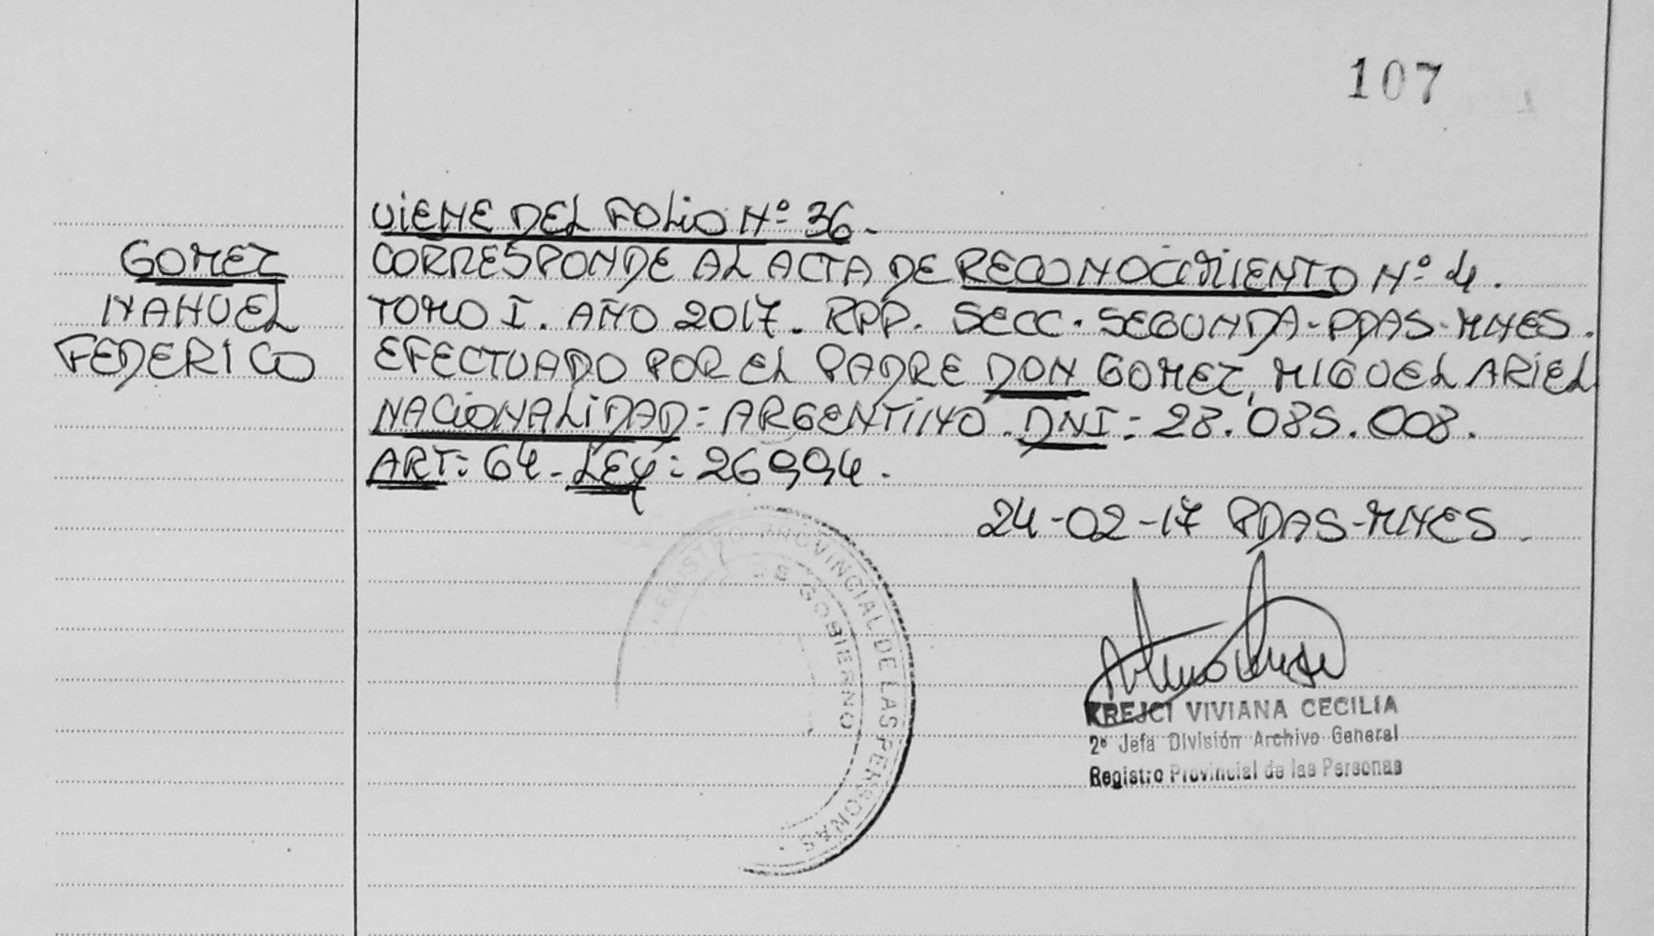 107
VIENE DEL FOLIO Nº 36.
GOMEZ
NAHUEL
FEDERICO
CORRESPONDE AL ACTA DE RECONOCIMIENTO Nº 4.
TOMO I. AÑO 2017. RPP. SECC. SEGUNDA-PDAS-MNES.
EFECTUADO POR EL PADRE DON GOMEZ, MIGUEL ARIEL
NACIONALIDAD: ARGENTINO. DNI: 28.085.008.
ART: 64. LEY: 26994.
24-02-17 PDAS-MNES.
REGISTRO PROVINCIAL DE LAS PERSONAS
DE GOBIERNO
KREJCI VIVIANA CECILIA
2º Jefa División Archivo General
Registro Provincial de las Personas